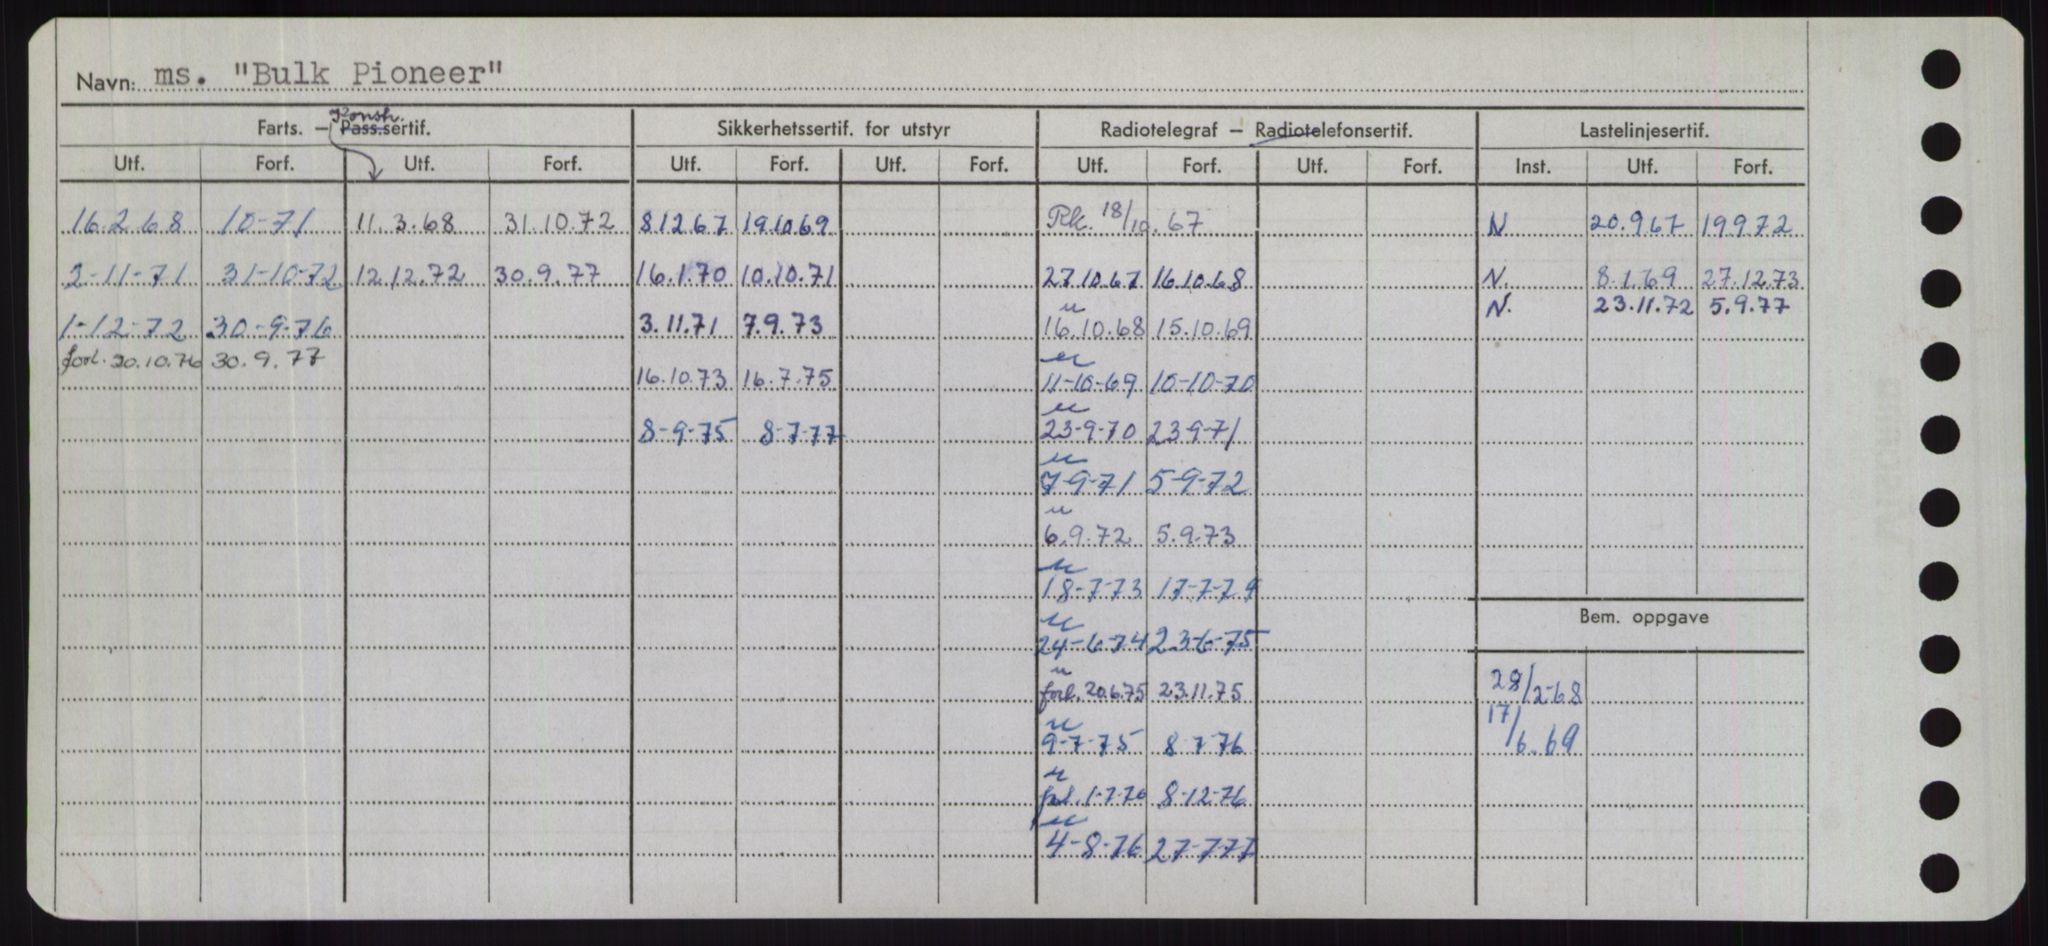 Navn: ms. "Bulk Pioneer"
Konstr.
Farts. – Pass.sertif. Sikkerhetssertif. for utstyr Radiotelegraf – Radiotelefonsertif. Lastelinjesertif.
Utf. Forf. Utf. Forf. Utf. Forf. Utf. Forf. Utf. Forf. Utf. Forf. Inst. Utf. Forf.
16.2.68 10-71 11.3.68 31.10.72 8.12.67 19.10.69 Rk. 18/10.67 N 20.9.67 19.9.72
2-11-71 31-10-72 12.12.72 30.9.77 16.1.70 10.10.71 27.10.67 16.10.68 N. 8.1.69 27.12.73
N. 23.11.72 5.9.77
1-12-72 30-9-76 3.11.71 7.9.73 u 16.10.68 15.10.69
forl. 20.10.76 30.9.77
16.10.73 16.7.75 u 11-10-69 10-10-70
8-9-75 8-7-77 u 23-9-70 23-9-71
u 7-9-71 5-9-72
u 6.9.72 5.9.73
u 18-7-73 17-7-74
Bem. oppgave
u 24-6-74 23-6-75
u forl. 20.6.75 23.11.75 28/2-68
u 9-7-75 8-7-76 17/6.69
u forl. 1-7-76 8-12-76
u 4-8-76 27-7-77